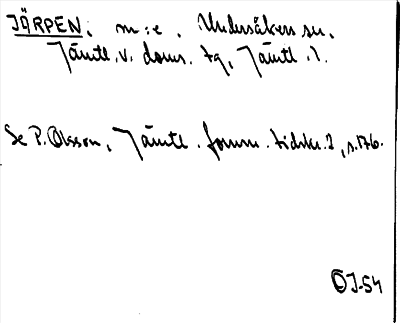 JÄRPEN, m:e. Undersåkers sn.
Jämtl. v. doms. tg, Jämtl. l.
Se P. Olsson, Jämtl. fornm. tidskr. 2, s. 176.
ÖJ-54